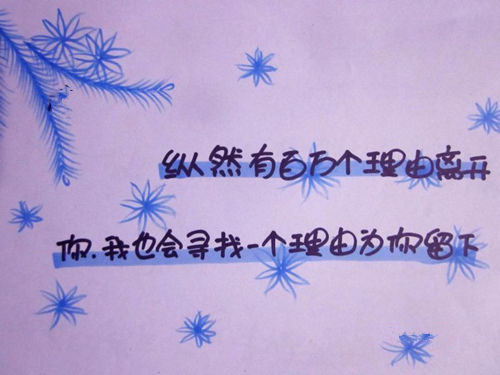 纵然有百万个理由离开
你.我也会寻找一个理由为你留下